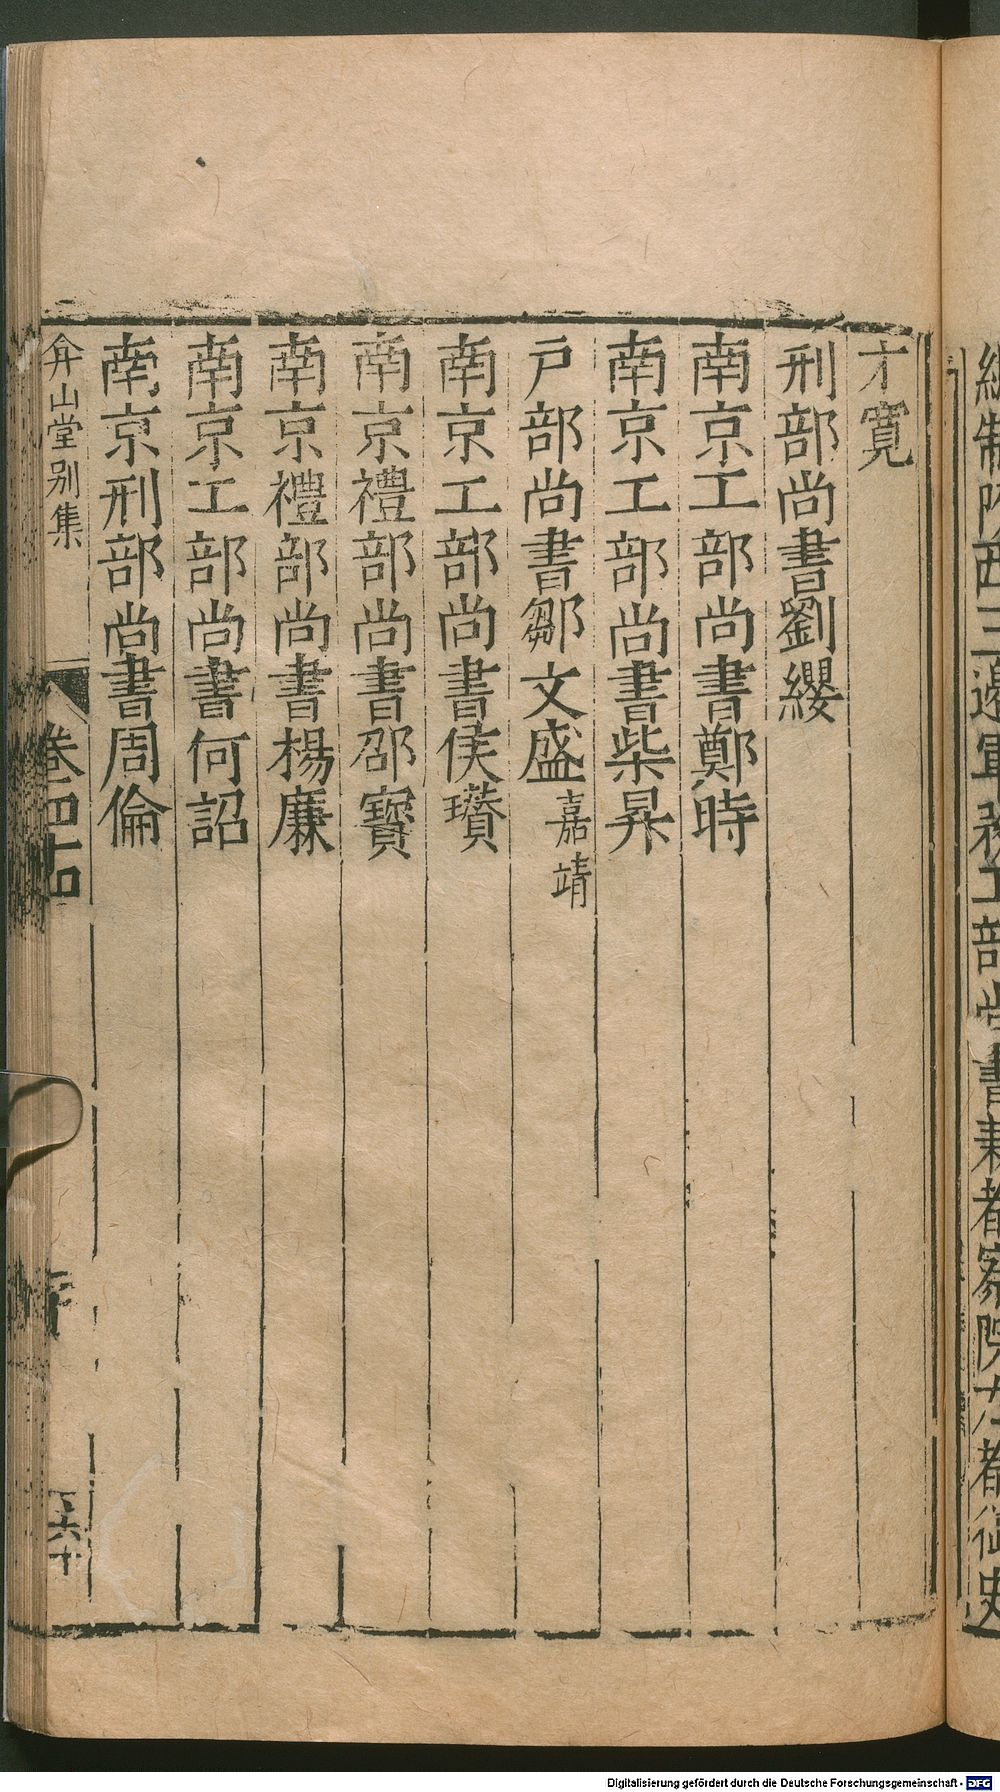 總制陝西三邊軍務工部尚書兼都察院左都御史
才寬
刑部尚書劉纓
南京工部尚書鄭時
南京工部尚書柴昇
戶部尚書鄒文盛嘉靖
南京工部尚書侯瓚
南京禮部尚書邵寳
南京禮部尚書楊廉
南京工部尚書何詔
南京刑部尚書周倫
弇山堂别集
卷四十
六十
Digitalisierung gefördert durch die Deutsche Forschungsgemeinschaft - DFG